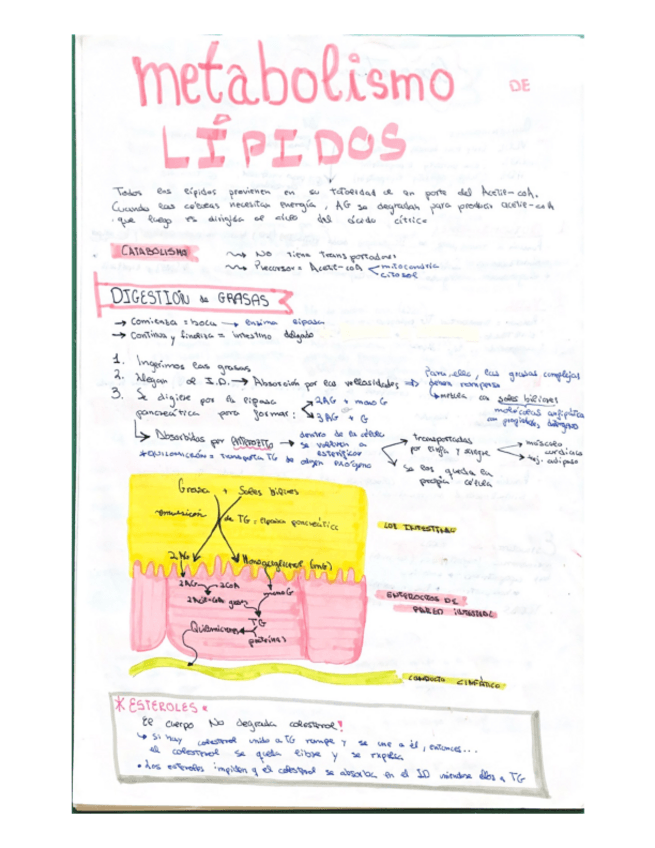 metabolismo DE
LÍPIDOS
Todos los lípidos provienen en su totalidad de un parte del Acetil-coA.
Cuando las células necesitan energía, AG se degradan para producir acetil-coA
que luego es dirigida al ciclo del ácido cítrico
CATABOLISMO
→ No tiene transportadores
→ Precursor = Acetil-coA < mitocondria
citosol
DIGESTIÓN de GRASAS
→ Comienza = boca → enzima lipasa
→ Continua y finaliza = intestino delgado
1. Ingerimos las grasas
2. Llegan al I.D. → Absorción por las vellosidades ⇒ Para ello, las grasas complejas
deben romperse
↳ mezcla con sales biliares
moléculas anfipáticas
con propiedades detergentes
3. Se digiere por la lipasa
pancreática para formar:
→ 2AG + monoG
→ 3AG + G
↳ Absorbidas por ENTEROCITO → dentro de la célula
se vuelven a
esterificar
* QUILOMICRÓN = transporta TG de origen exógeno
→ transportadas
por linfa y sangre
→ músculo
cardíaco
→ tej. adiposo
→ se los queda la
propia célula
Grasa + Sales biliares
emulsión
de TG = lipasa pancreática
2AG
Monoacilglicerol (mG)
LUZ INTESTINAL
2AG 2CoA
monoG
TG
Quilomicrones
proteínas
ENTEROCITOS DE
PARED INTESTINAL
CONDUCTO LINFÁTICO
* ESTEROLES *
El cuerpo No degrada colesterol!
↳ Si hay colesterol unido a TG rompe y se une a él, entonces...
el colesterol se queda libre y se expulsa
• Los esteroles impiden q el colesterol se absorba en el ID uniendose ellos a TG